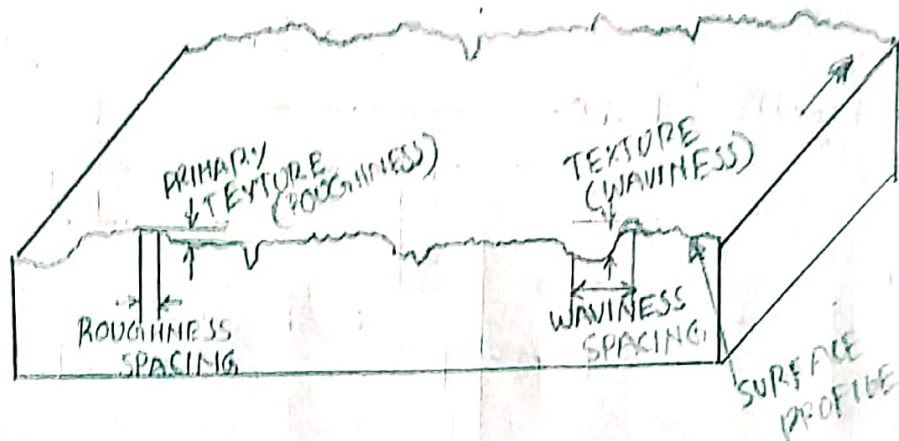 PRIMARY
TEXTURE
(ROUGHNESS)
TEXTURE
(WAVINESS)
ROUGHNESS
SPACING
WAVINESS
SPACING
SURFACE
PROFILE